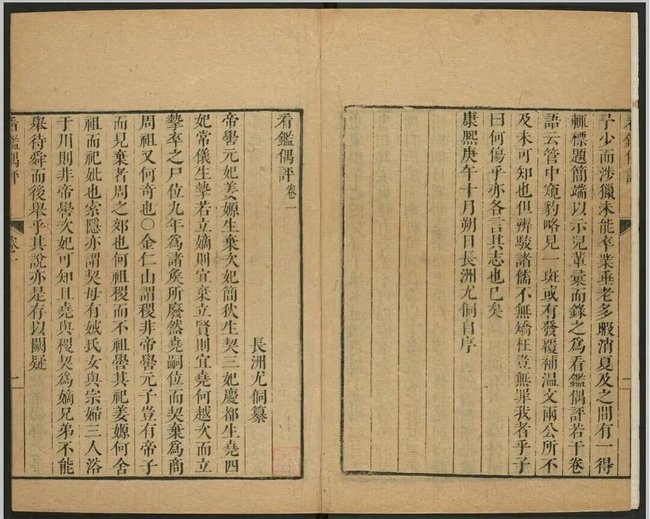 予少而涉獵未能卒業垂老多暇消夏及之間有一得
輒標題簡端以示兒輩彙而錄之為看鑑偶評若干卷
語云管中窺豹略見一斑或有發覆補温文兩公所不
及未可知也但辨駁諸儒不無矯枉豈無罪我者乎子
曰何傷乎亦各言其志也已矣
康熙庚午十月朔日長洲尤侗自序
看鑑偶評卷一
長洲尤侗纂
帝嚳元妃姜嫄生棄次妃簡狄生契三妃慶都生堯四
妃常儀生摯若立嫡則宜棄立賢則宜堯何越次而立
摯卒之尸位九年為諸矦所廢然堯嗣位而契棄為商
周祖又何奇也○金仁山謂稷非帝嚳元子豈有帝子
而見棄者周之郊也何祖稷而不祖嚳其祀姜嫄何舍
祖而祀妣也索隱亦謂契母有娀氏女與宗婦三人浴
于川則非帝嚳次妃可知且堯與稷契為嫡兄弟不能
舉待舜而後舉乎其說亦是存以闕疑
看鑑偶評
卷一
一